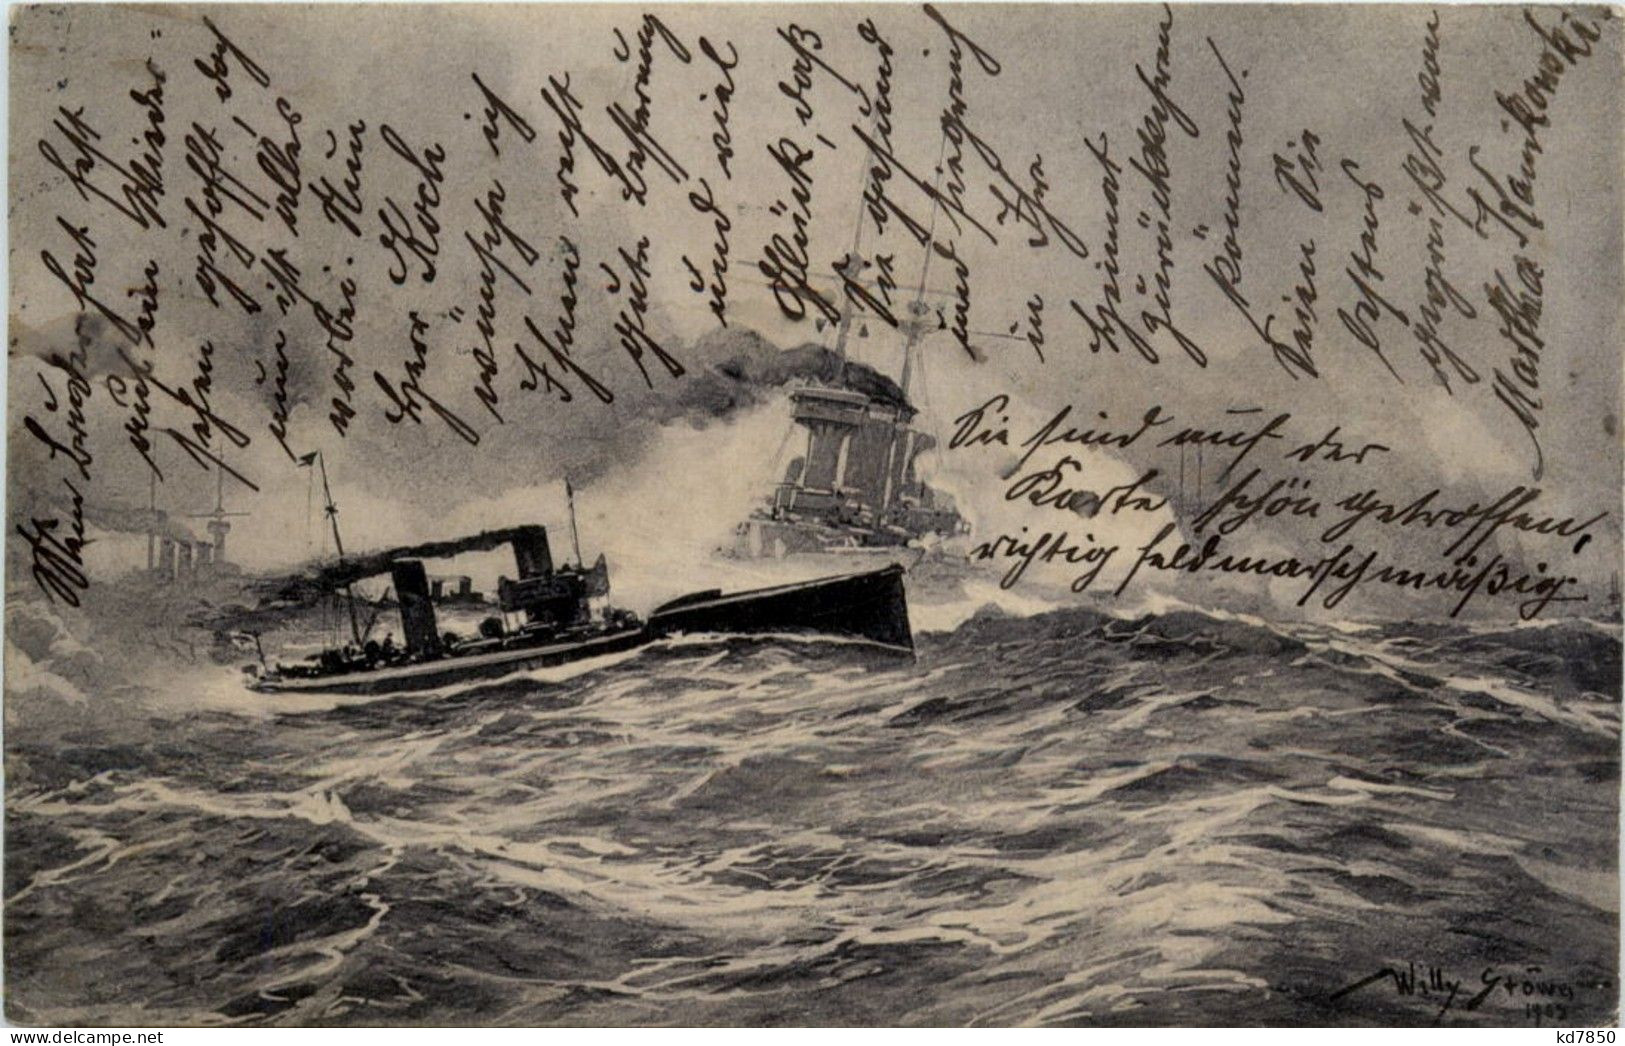 Mein Bruder hat fest
auf ein Wieder-
sehen gehofft, doch
nun ist alles
vorbei. Nun
Herr Koch
wünsche ich
Ihnen recht
gute Besserung
und viel
Glück, daß
Sie gesund
und siegreich
in Ihre
Heimat
zurückkehren
können.
Seien Sie
bestens
gegrüßt von
Martha Kaminkowski
Sie sind auf der
Karte schön getroffen,
richtig feldmarschmäßig.
Willy Stöwer
kd7850